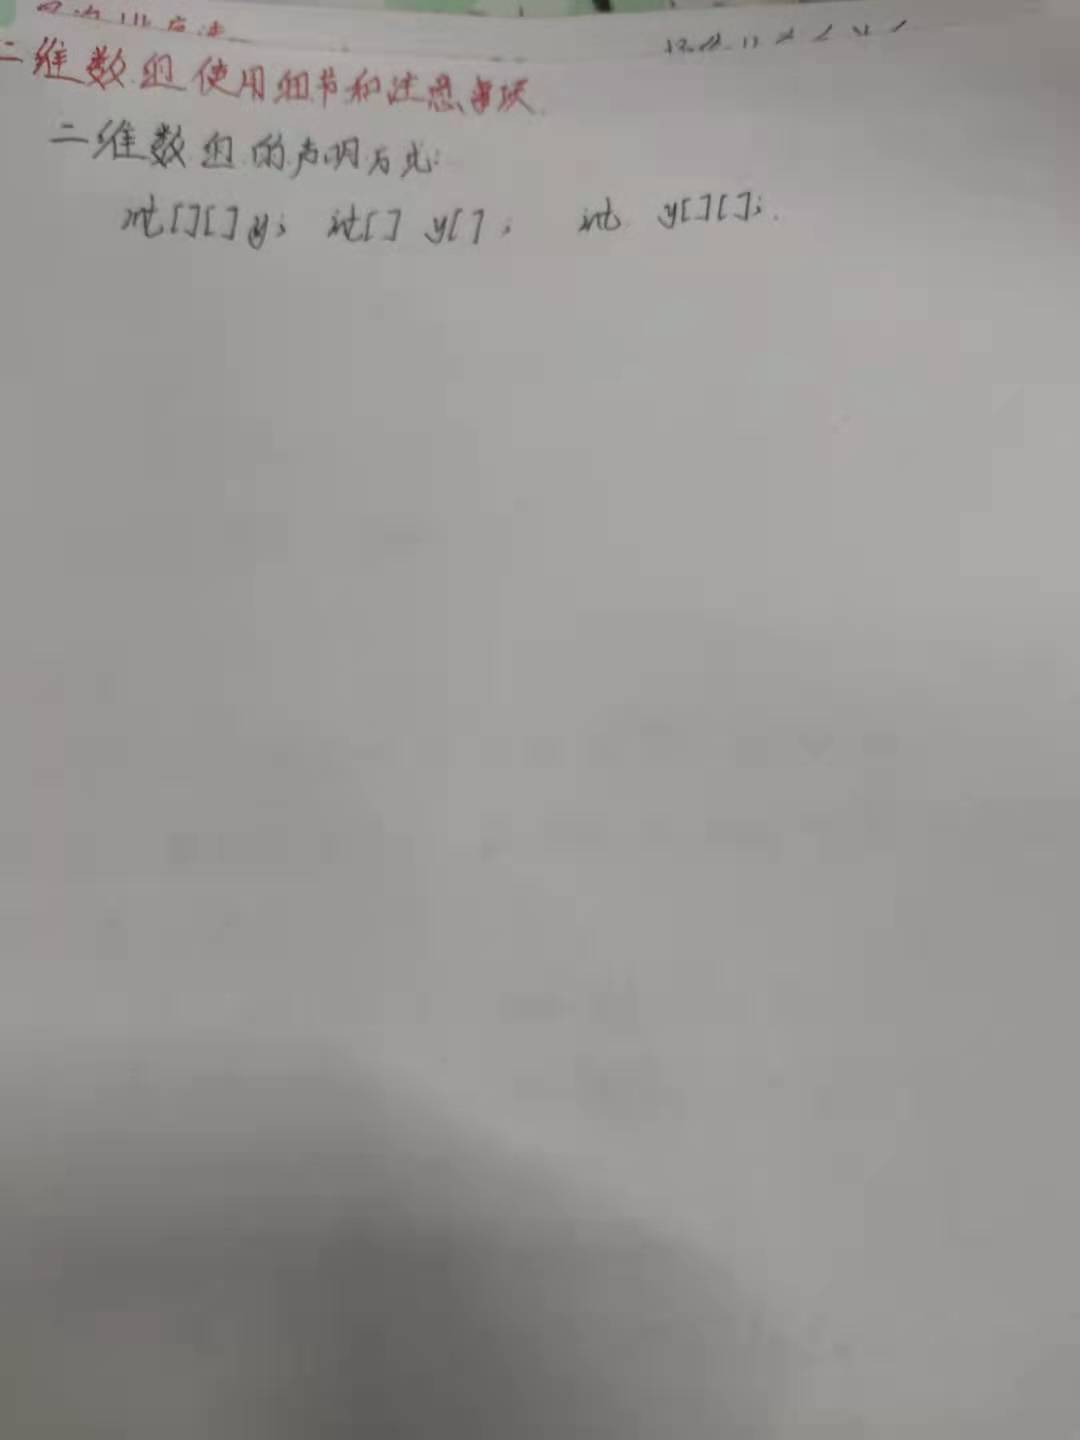 二维数组使用细节和注意事项
二维数组的声明方式:
int[][] y; int[] y[]; int y[][];